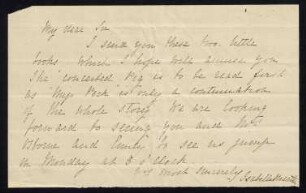 My dear Sir
I send you these two little
books which I hope will amuse you
The "conceited Pig" is to be read first
as "Mrs Pork" is only a continuation
of the whole story. We are looking
forward to seeing you and Mrs
and family to see us jump
on Monday at 3 o'clock.
most sincerely